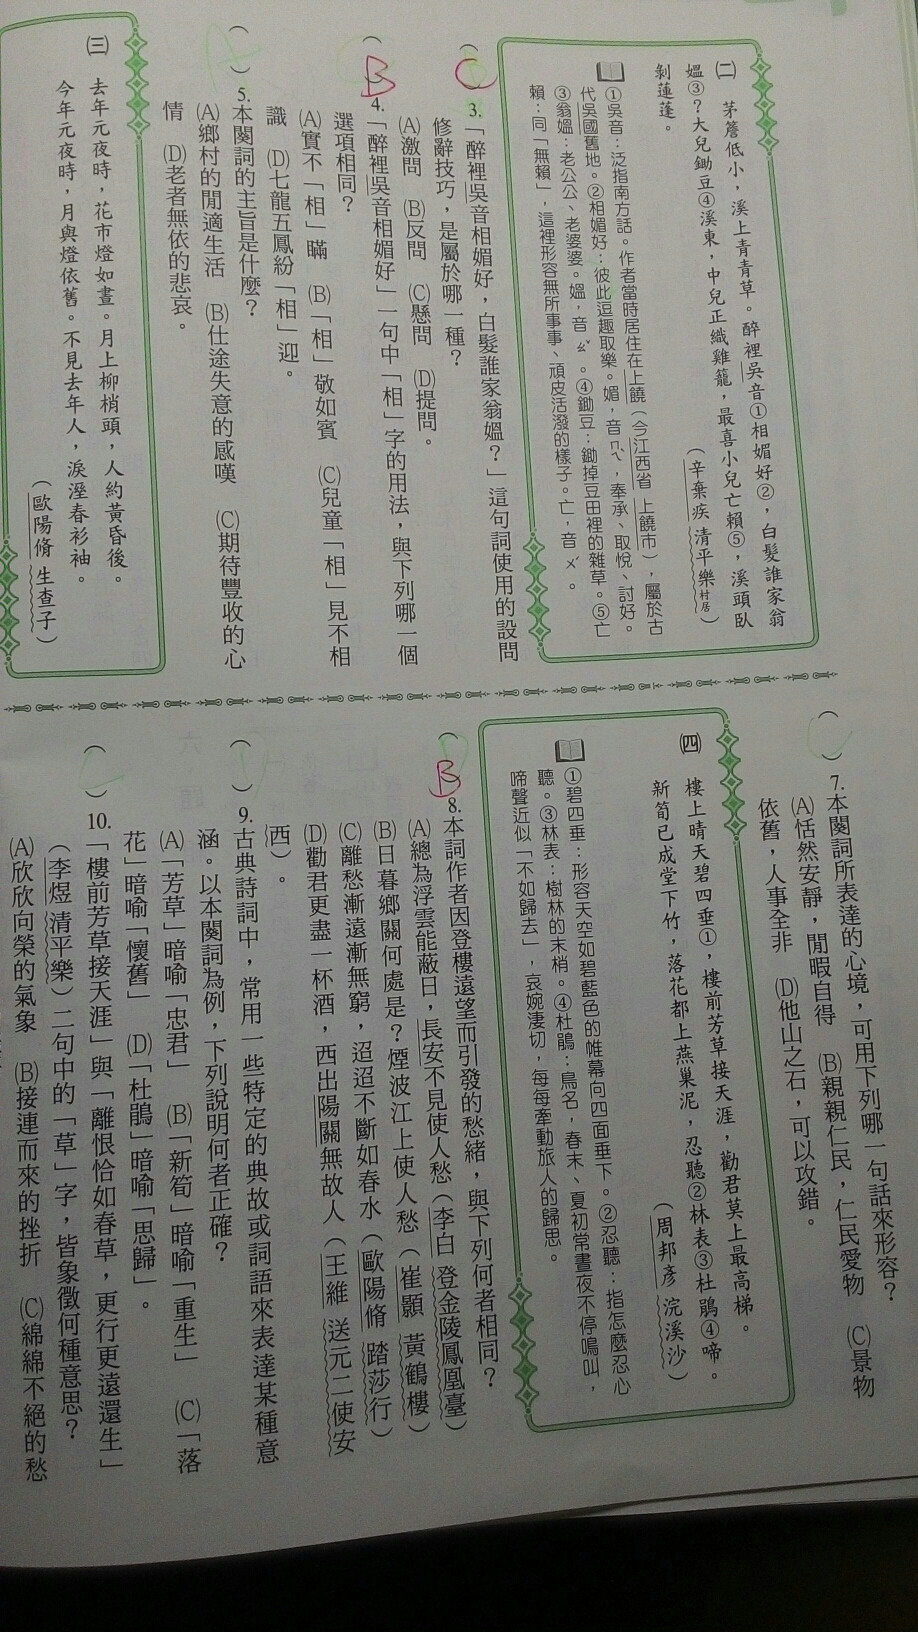 ㈡　茅簷低小，溪上青青草。醉裡吳音①相媚好②，白髮誰家翁
媼③？大兒鋤豆④溪東，中兒正織雞籠，最喜小兒亡賴⑤，溪頭臥
剝蓮蓬。
（辛棄疾 清平樂村居）
①吳音：泛指南方話。作者當時居住在上饒（今江西省 上饒市），屬於古
代吳國舊地。②相媚好：彼此逗趣取樂。媚，音ㄇㄟˋ，奉承、取悅、討好。
③翁媼：老公公、老婆婆。媼，音ㄠˇ。④鋤豆：鋤掉豆田裡的雜草。⑤亡
賴：同「無賴」，這裡形容無所事事、頑皮活潑的樣子。亡，音ㄨˊ。
（C）3.「醉裡吳音相媚好，白髮誰家翁媼？」這句詞使用的設問
修辭技巧，是屬於哪一種？
(A)激問　(B)反問　(C)懸問　(D)提問。
（B）4.「醉裡吳音相媚好」一句中「相」字的用法，與下列哪一個
選項相同？
(A)實不「相」瞞　(B)「相」敬如賓　(C)兒童「相」見不相
識　(D)七龍五鳳紛「相」迎。
（A）5.本闋詞的主旨是什麼？
(A)鄉村的閒適生活　(B)仕途失意的感嘆　(C)期待豐收的心
情　(D)老者無依的悲哀。
㈢　去年元夜時，花市燈如晝。月上柳梢頭，人約黃昏後。
今年元夜時，月與燈依舊。不見去年人，淚溼春衫袖。
（歐陽脩 生查子）
（C）7.本闋詞所表達的心境，可用下列哪一句話來形容？
(A)恬然安靜，閒暇自得　(B)親親仁民，仁民愛物　(C)景物
依舊，人事全非　(D)他山之石，可以攻錯。
㈣　樓上晴天碧四垂①，樓前芳草接天涯，勸君莫上最高梯。
新筍已成堂下竹，落花都上燕巢泥，忍聽②林表③杜鵑④啼。
（周邦彥 浣溪沙）
①碧四垂：形容天空如碧藍色的帷幕向四面垂下。②忍聽：指怎麼忍心
聽。③林表：樹林的末梢。④杜鵑：鳥名，春末、夏初常晝夜不停鳴叫，
啼聲近似「不如歸去」，哀婉淒切，每每牽動旅人的歸思。
（B）8.本詞作者因登樓遠望而引發的愁緒，與下列何者相同？
(A)總為浮雲能蔽日，長安不見使人愁（李白 登金陵鳳凰臺）
(B)日暮鄉關何處是？煙波江上使人愁（崔顥 黃鶴樓）
(C)離愁漸遠漸無窮，迢迢不斷如春水（歐陽脩 踏莎行）
(D)勸君更盡一杯酒，西出陽關無故人（王維 送元二使安
西）。
（D）9.古典詩詞中，常用一些特定的典故或詞語來表達某種意
涵。以本闋詞為例，下列說明何者正確？
(A)「芳草」暗喻「忠君」　(B)「新筍」暗喻「重生」　(C)「落
花」暗喻「懷舊」　(D)「杜鵑」暗喻「思歸」。
（C）10.「樓前芳草接天涯」與「離恨恰如春草，更行更遠還生」
（李煜 清平樂）二句中的「草」字，皆象徵何種意思？
(A)欣欣向榮的氣象　(B)接連而來的挫折　(C)綿綿不絕的愁